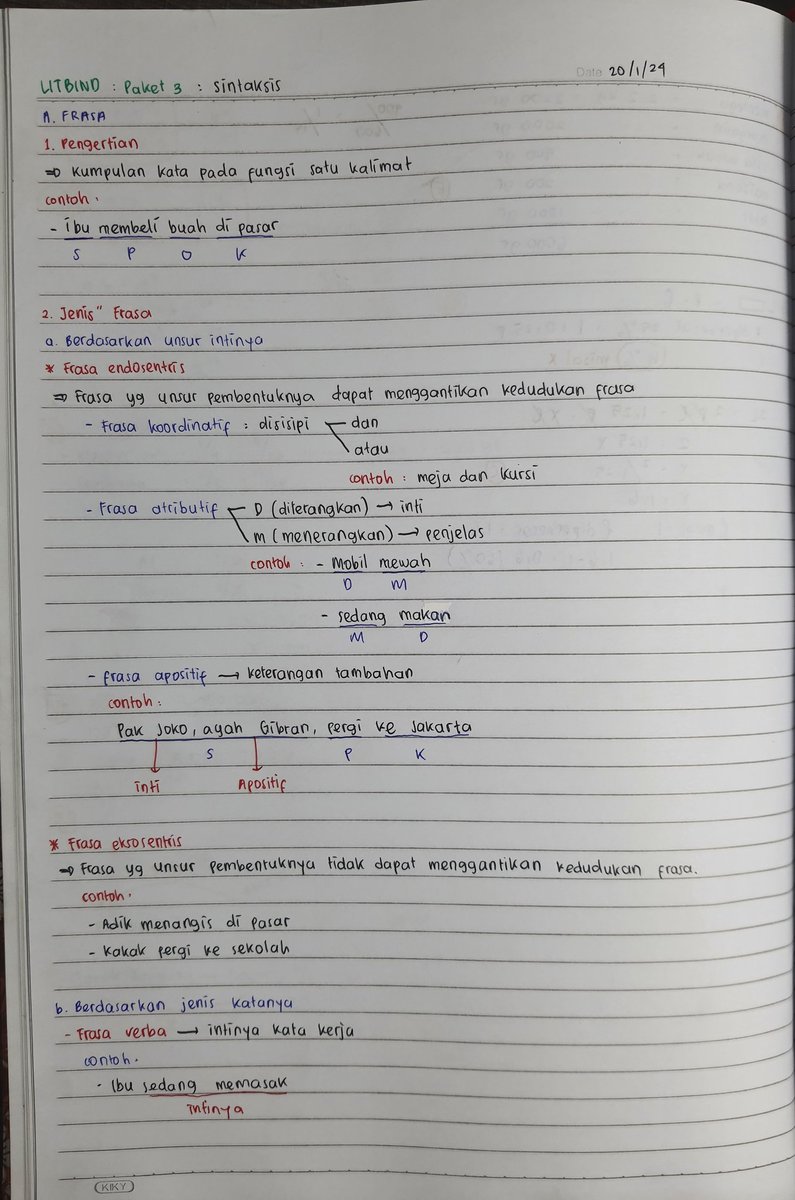 Date 20/1/24
LITBIND : Paket 3 : sintaksis
A. FRASA
1. Pengertian
⇒ Kumpulan kata pada fungsi satu kalimat
contoh :
- ibu membeli buah di pasar
S P O K
2. Jenis" Frasa
a. Berdasarkan unsur intinya
* Frasa endosentris
⇒ Frasa yg unsur pembentuknya dapat menggantikan kedudukan frasa
- Frasa koordinatif : disisipi dan
atau
contoh : meja dan kursi
- Frasa atributif D (diterangkan) → inti
M (menerangkan) → penjelas
contoh : - Mobil mewah
D M
- sedang makan
M D
- frasa apositif → keterangan tambahan
contoh :
Pak Joko, ayah Gibran, pergi ke Jakarta
S P K
inti Apositif
* Frasa eksosentris
⇒ Frasa yg unsur pembentuknya tidak dapat menggantikan kedudukan frasa.
contoh :
- Adik menangis di pasar
- Kakak pergi ke sekolah
b. Berdasarkan jenis katanya
- Frasa verba → intinya kata kerja
contoh :
- Ibu sedang memasak
intinya
KIKY